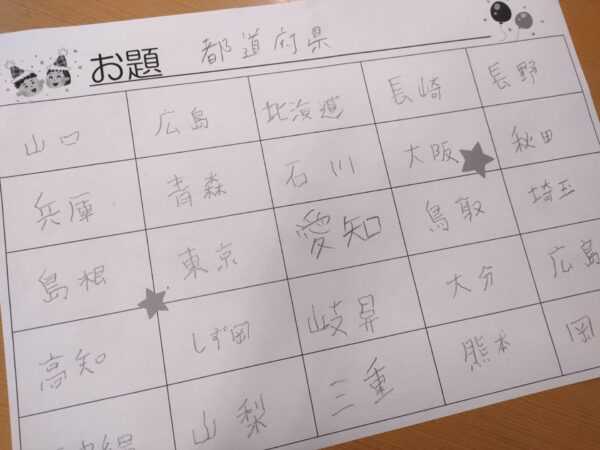 お題 都道府県
山口 広島 北海道 長崎 長野
兵庫 青森 石川 大阪 秋田
島根 東京 愛知 鳥取 埼玉
高知 しず岡 岐昇 大分 広島
山梨 三重 熊本 岡